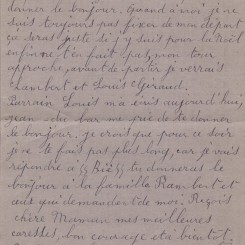 donner le bonjour. Quand à moi je ne
suis toujours pas fixer de mon départ
ca seras juste si j'y suis pour la Noël
enfin ne t'en fait pas, mon tour
approche, avant de partir je verrais
Chambert et Louis Giraud.
Lorrain Louis m'a écris aujourd'hui,
Jean du bar me prie de te donner
le bonjour. je crois que pour ce soir
je ne te fais pas plus long, car je vais
répondre à Riè tu donneras le
bonjour à la famille Rambert et
ceux qui demandent de moi. Reçois
chère Maman mes meilleures
caresses, bon courage et à bientôt.